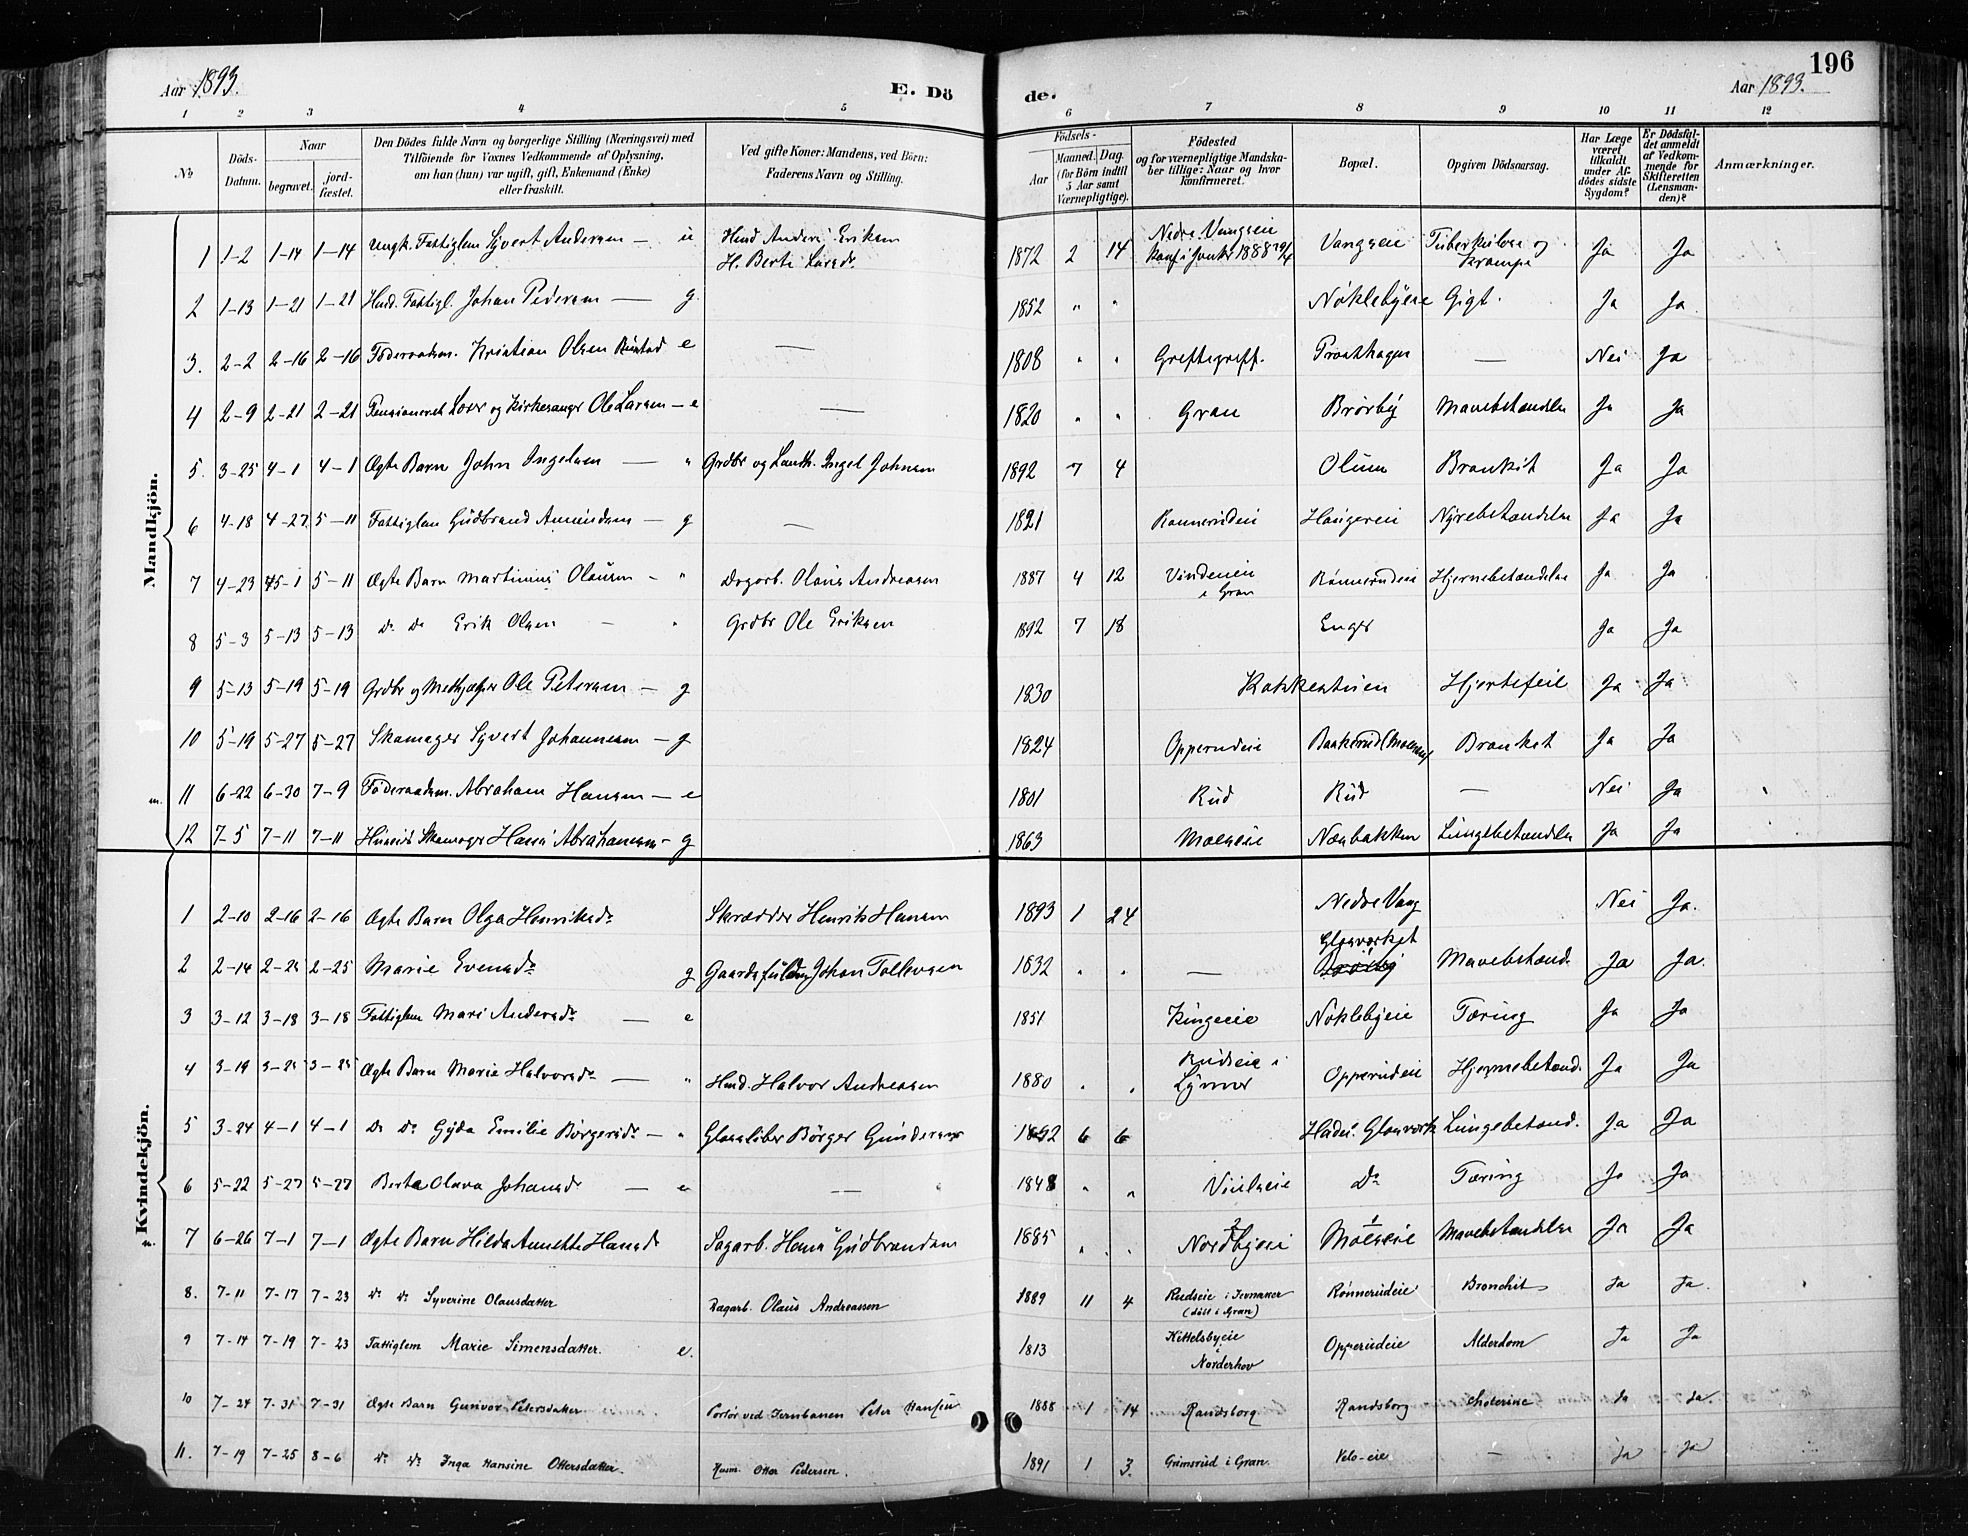 Aar 1893.
E. Dö
de.
Aar 1893.
196
1 2 3 4 5 6 7 8 9 10 11 12
No
Döds-Datum.
Naar
begravet.
jord-fæstet.
Den Dödes fulde Navn og borgerlige Stilling (Næringsvei) med
Tilföiende for Voxnes Vedkommende af Oplysning,
om han (hun) var ugift, gift, Enkemand (Enke)
eller fraskilt.
Ved gifte Koner: Mandens, ved Börn:
Faderens Navn og Stilling.
Födsels-
Aar
Maaned. Dag.
(for Börn indtil
5 Aar samt
Værnepligtige).
Födested
og for værnepligtige Mandska-
ber tillige: Naar og hvor
konfirmeret.
Bopæl.
Opgiven Dödsaarsag.
Har Læge
været
tilkaldt
under Af-
dödes sidste
Sygdom?
Er Dödsfal-
det anmeldt
af Vedkom-
mende for
Skifteretten
(Lensman-
den)?
Anmærkninger.
Mandkjön.
1 1-2 1-14 1-14 Ungk. Fattiglem Syvert Andersen — u Husd Anders Eriksen H. Berte Larsdr 1872 2 14 Nedre Vangseie Vangseie Tuberkulose og Krampe Ja Ja
2 1-13 1-21 1-21 Husd. Fattigl. Johan Pedersen — g. 1852 " " Nøklebyeie Gigt. Ja Ja
3. 2-2 2-16 2-16 Föderaadsm. Kristian Olsen Rustad e — 1808 " " Greftegreff. Prosthagen — Nei Ja
4 2-9 2-21 2-21 Pensioneret Lærer og Kirkesanger Ole Larsen — e — 1820 " " Gran Brørby Mavebetændelse Ja Ja
5. 3-25 4-1 4-1 Ægte Barn John Ingelsen — " Grdbr og Landh. Ingel Johnsen 1892 7 4 Olum Bronkit Ja Ja
6 4-18 4-27 5-11 Fattiglem Gudbrand Amundsen — g — 1821 Rønnerudeie Haugereie Nyrebetændelse Ja Ja
7 4-23 5-1 5-11 Ægte Barn Martinius Olausen — " Dagarb. Olaus Andreasen 1887 4 12 Vindeneie i Gran Rønnerudeie Hjernebetændelse Ja Ja
8 5-3 5-13 5-13 Do Do Erik Olsen — " Grdbr Ole Eriksen 1892 7 18 Enger Ja Ja
9 5-13 5-19 5-19 Grdbr og Ole Petersen — g 1830 Kokkestuen Hjertefeil Ja Ja
10 5-19 5-27 5-27 Skomager Syvert Johannesen — g 1824 Opperudeie Bakkerud Bronkit Ja Ja
11 6-22 6-30 7-9 Föderaadsm. Abraham Hansen — e 1801 Rud Rud — Nei Ja
12 7-5 7-11 7-11 Skomager Hans Abrahamsen — g 1863 Moeseie Næsbakken Lungebetændelse Ja Ja
Kvindekjön.
1 2-10 2-16 2-16 Ægte Barn Olga Henriksdr Skrædder Henrik Hansen 1893 1 24 Nedre Vang Nei Ja.
2 2-14 2-25 2-25 Marie Evensdr g Johan Tollevsen 1832 " " — Glasværket Mavebetænd. Ja Ja.
3 3-12 3-18 3-18 Fattiglem Mari Andersdr — e 1851 Kingeeie Nøklebyeie Tæring Ja Ja
4 3-19 3-25 3-25 Ægte Barn Marie Halvorsdr — " Husd. Halvor Andreasen 1880 " " Rudseie i Lynner Opperudeie Hjernebetænd. Ja Ja
5 3-24 4-1 4-1 Do Do Gyda Emilie Børgersdr — " Glassliber Børger Gundersen 1892 6 6 Hadel. Glasværk Lungebetænd. Ja Ja
6 5-22 5-27 5-27 Berte Olava Johansdr — e — 1848 " " Do Tæring Ja Ja
7 6-26 7-1 7-1 Ægte Barn Hilda Annette Hansdr Sagarb. Hans Gudbrandsen 1885 " " Nordbyeie Moeseie Mavebetændelse Ja Ja
8. 7-11 7-17 7-23 Do Do Syverine Olausdatter Dagarb. Olaus Andreassen 1889 11 4 Rudseie i Jevnaker (døbt i Gran) Rønnerudeie Bronchit Ja Ja.
9 7-14 7-19 7-23 Fattiglem Marie Simensdatter. e. 1813 Kittelsbyeie i Norderhov Opperudeie Alderdom Ja Ja
10 7-24 7-31 7-31 Ægte Barn Gunvor Petersdatter Portør ved Jernbanen Peter Hansen 1888 1 14 Randsborg Randsborg Cholerine Ja Ja.
11. 7-19 7-25 8-6 Do Do Inga Hansine Ottersdatter. Husm. Otter Pedersen. 1891 1 3. Grimsrud i Gran. Velo-eie — Ja Ja